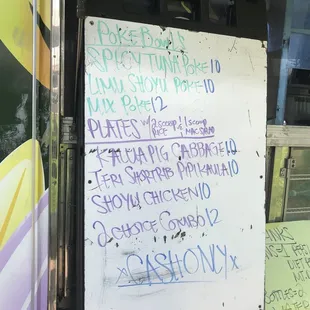 POKE BOWLS
SPICY TUNA POKE 10
LIMU SHOYU POKE 10
MIX POKE 12
PLATES W/ 2 SCOOP RICE & 1 SCOOP MAC SALAD
KALUA PIG CABBAGE 10
TERI SHORT RIB PIPIKAULA 10
SHOYU CHICKEN 10
2 CHOICE COMBO 12
x CASH ONLY x
DIET